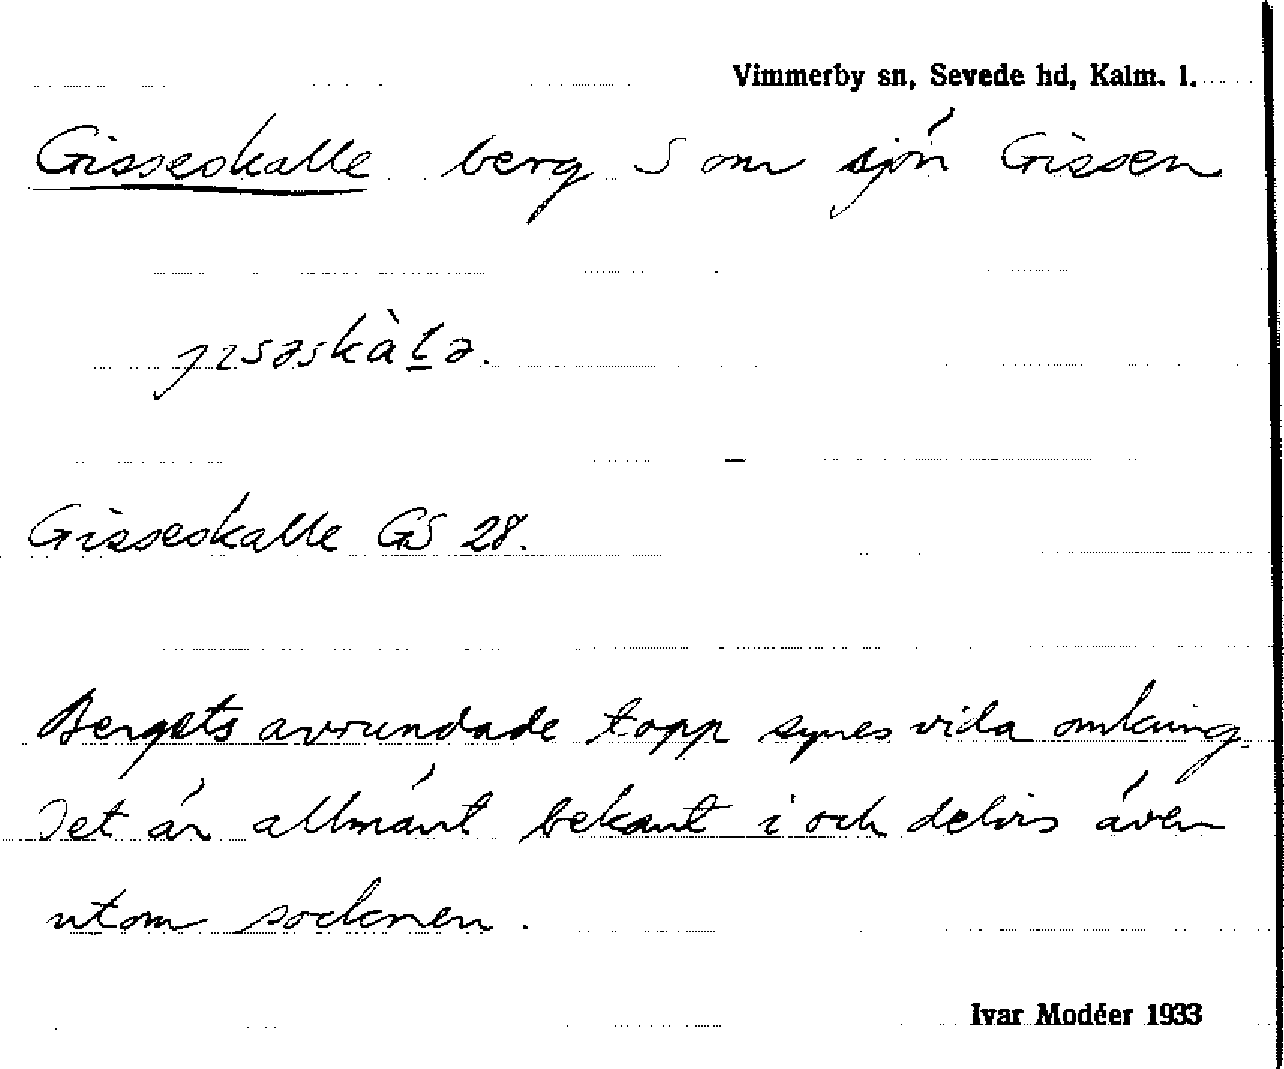 Vimmerby sn, Sevede hd, Kalm. l.
Gisseskalle berg S om sjön Gissen
ɟɪsəskàḻə.
Gisseskalle GS 28.
Bergets avrundade topp synes vida omkring.
Det är allmänt bekant i och delvis även
utom socknen.
Ivar Modéer 1933